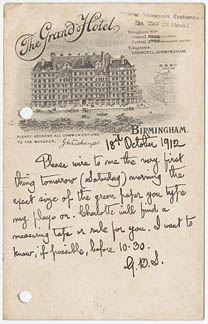 The Grand Hotel
Telephone Exchange
Telegrams:
GRANDOTEL, BIRMINGHAM.
PLEASE ADDRESS ALL COMMUNICATIONS
TO THE MANAGER,
BIRMINGHAM.
18th October 1912
Please wire to me the very first
thing tomorrow (Saturday) morning the
exact size of the green paper you type
my plays on. Charlotte will find a
measuring tape or rule for you. I want to
know, if possible, before 10.30.
G.B.S.